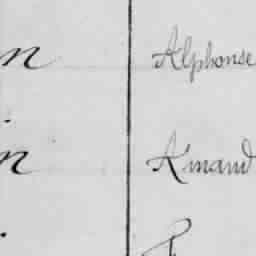 n Alphonse
in Amand